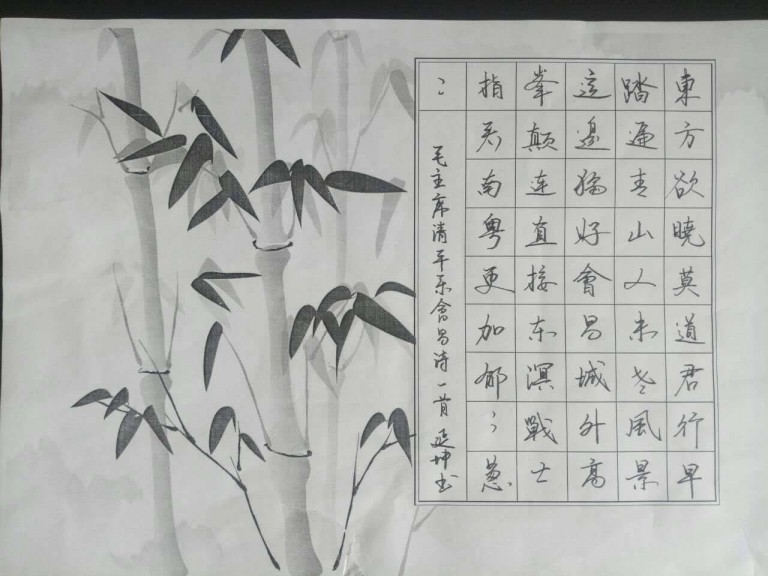 東方欲曉莫道君行早
踏遍青山人未老風景
這邊獨好會昌城外高
峯顛連直接东溟戰士
指看南粤更加郁〻葱
〻
毛主席清平乐會昌诗一首 延坤书